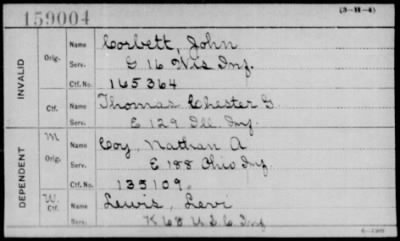 159004
(3-H-4)
INVALID
Orig.
Name Corbett, John
Serv. G 16 Wis Inf.
Ctf. No. 165364
Ctf.
Name Thomas Chester G.
Serv. E 129 Ill. Inf.
DEPENDENT
M
Orig.
Name Coy, Nathan A
Serv. E 188 Ohio Inf
Ctf. No. 135109.
W.
Ctf.
Name Lewis, Levi
Serv. K 68 U.S.C Inf